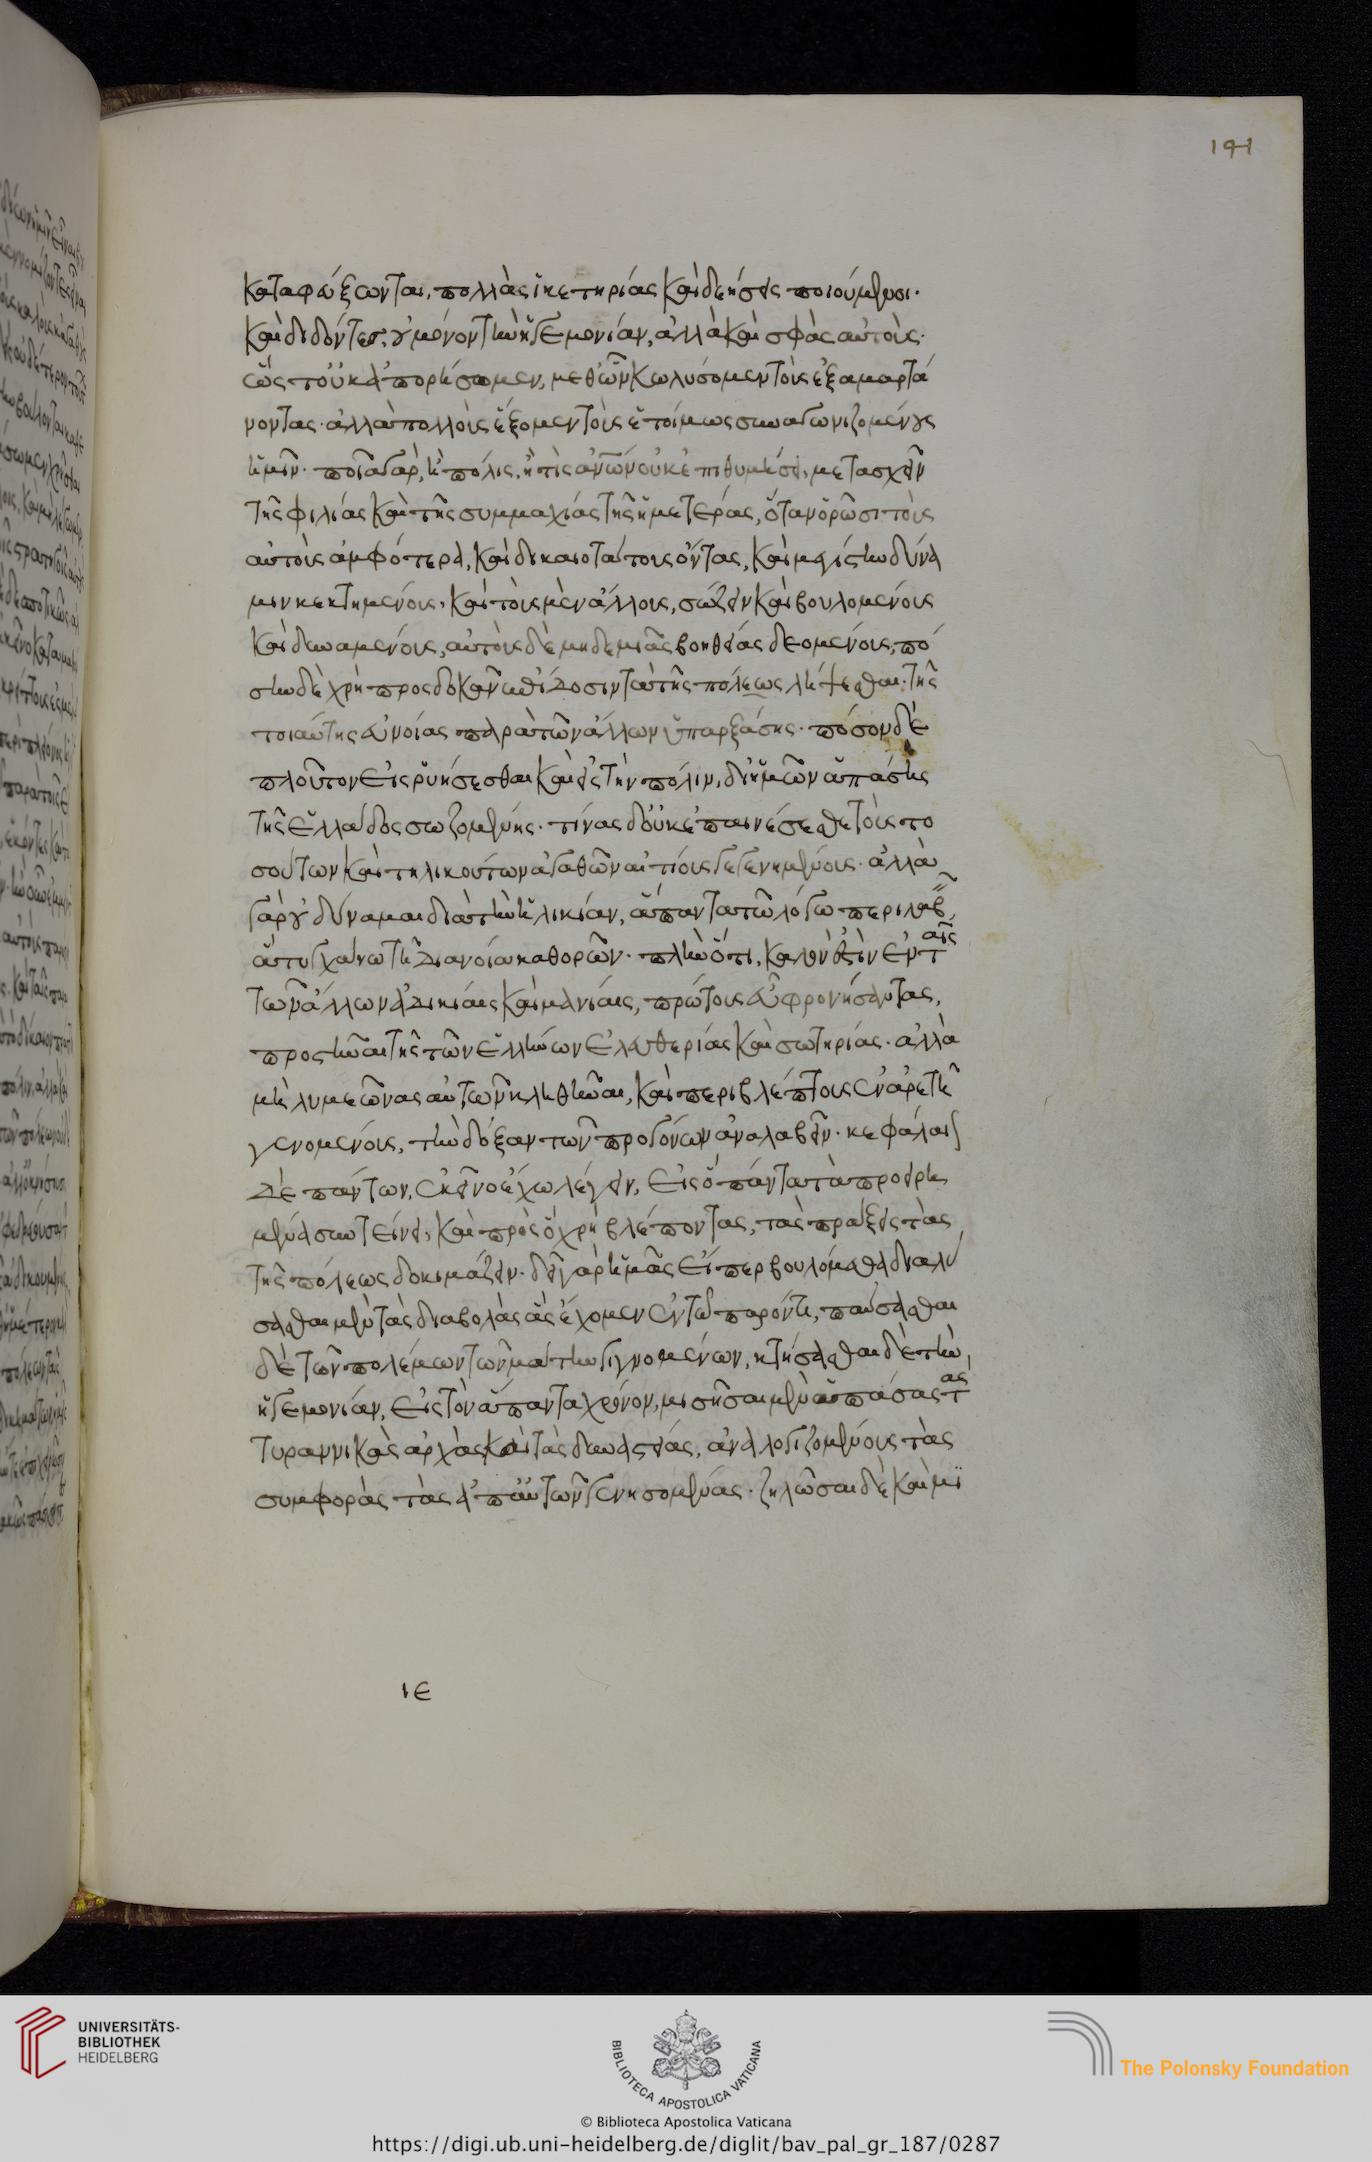 καταφεύξωνται, πολλὰς ἱκετηρίας καὶ δεήσεις ποιούμενοι·
καὶ διδόντες, οὐ μόνον τὴν ἡγεμονίαν, ἀλλὰ καὶ σφᾶς αὐτοὺς·
ὥς τ' οὐκ ἀπορήσομεν, μεθ' ὧν κωλύσομεν τοὺς ἐξαμαρτά
νοντας· ἀλλὰ πολλοὺς ἕξομεν τοὺς ἑτοίμως συναγωνιζομένους
ἡμῖν· ποία γὰρ, ἢ πόλις, ἢ τίς ἀνῶν οὐκ ἐπιθυμήσει, μετασχεῖν
τῆς φιλίας καὶ τῆς συμμαχίας τῆς ἡμετέρας, ὅταν ὁρῶσι τοὺς
αὐτοὺς ἀμφότερα, καὶ δικαιοτάτους ὄντας, καὶ μεγίστην δύνα
μιν κεκτημένους, καὶ τοὺς μὲν ἄλλους, σώζειν καὶ βουλομένους
καὶ δυναμένους, αὐτοὺς δὲ μηδεμιᾶς βοηθείας δεομένους, πό
σην δὲ χρὴ προσδοκᾶν ἐπίδοσιν τὰ τῆς πόλεως λήψεσθαι· τῆς
τοιαύτης εὐνοίας παρὰ τῶν ἄλλων ὑπαρξάσης· πόσον δὲ
πλοῦτον εἰσρυήσεσθαι καὶ εἰς τὴν πόλιν, δι' ἡμῶν ἁπάσης
τῆς ἑλλάδος σωζομένης· τίνας δ' οὐκ ἐπαινέσεσθε τοὺς το
σούτων καὶ τηλικούτων ἀγαθῶν αἰτίους γεγενημένους· ἀλλὰ
γὰρ οὐ δύναμαι διὰ τὴν ἡλικίαν, ἅπαντα τῶ λόγω περιλαβεῖν,
ἃ τυγχάνω τῆ διανοία καθορῶν· πλὴν ὅτι, καλόν ἐστιν ἐν ταῖς
τῶν ἄλλων ἀδικίαις καὶ μανίαις, πρώτους εὖ φρονήσαντας,
προστῆναι τῆς τῶν ἑλλήνων ἐλευθερίας καὶ σωτηρίας· ἀλλὰ
μὴ λυμεῶνας αὐτῶν κληθῆναι, καὶ περιβλέπτους ἐν ἀρετῆ
γενομένους, τὴν δόξαν τῶν προγόνων ἀναλαβεῖν· κεφάλαιον
δὲ πάντων, ἐκεῖνο ἔχω λέγειν, εἰς ὃ πάντα τὰ προειρη
μένα συντείνει, καὶ πρὸς ὃ χρὴ βλέποντας, τὰς πράξεις τὰς
τῆς πόλεως δοκιμάζειν· δεῖ γὰρ ἡμᾶς εἴπερ βουλόμεθα διαλύ
σασθαι μὲν τὰς διαβολὰς ἃς ἔχομεν ἐν τῶ παρόντι, παύσασθαι
δὲ τῶν πολέμων τῶν μάτην γιγνομένων, κτήσασθαι δὲ τὴν
ἡγεμονίαν, εἰς τὸν ἅπαντα χρόνον, μισῆσαι μὲν ἁπάσας τὰς
τυραννικὰς ἀρχὰς καὶ τὰς δυναστείας, ἀναλογιζομένους τὰς
συμφορὰς τὰς ἀπ' αὐτῶν γενησομένας· ζηλῶσαι δὲ καὶ μι
ιε
191
UNIVERSITÄTS-
BIBLIOTHEK
HEIDELBERG
BIBLIOTECA APOSTOLICA VATICANA
The Polonsky Foundation
© Biblioteca Apostolica Vaticana
https://digi.ub.uni-heidelberg.de/diglit/bav_pal_gr_187/0287